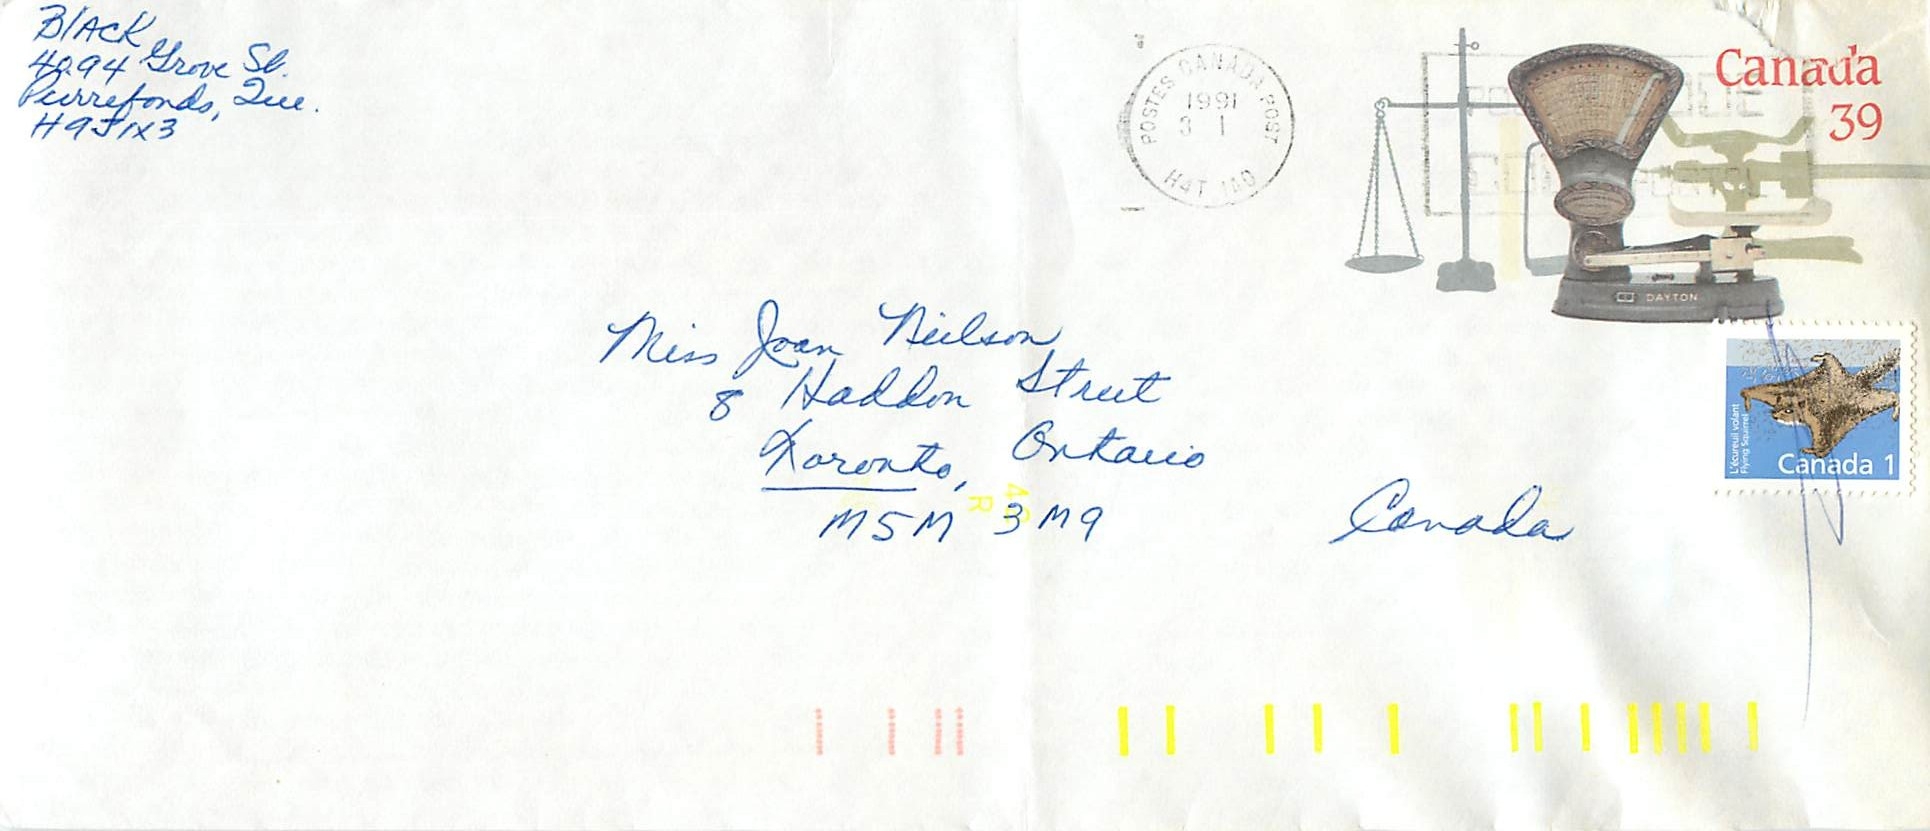 Black
4094 Grove St.
Pierrefonds, Que.
H9J1X3
POSTES CANADA POST
1991
3 1
H4T 1A0
POSTAL CODE
CODE POSTAL
Canada
39
DAYTON
Miss Joan Neilson
8 Haddon Street
Toronto, Ontario
M5M 3M9
Canada
L'écureuil volant
Flying Squirrel
Canada 1